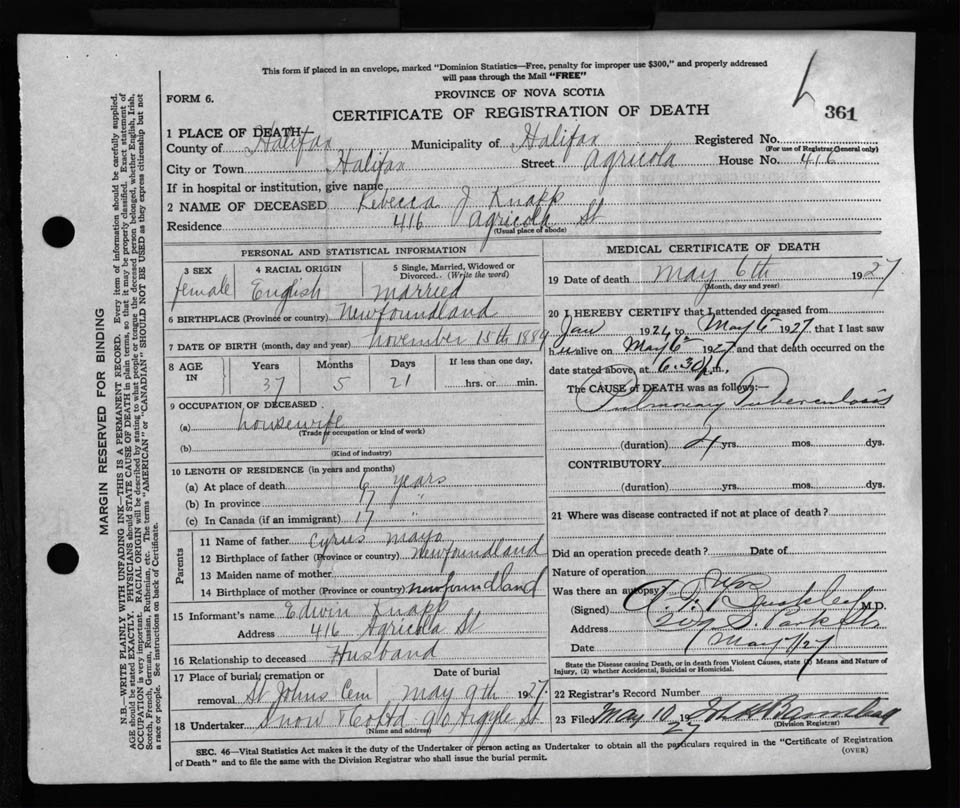 This form if placed in an envelope, marked "Dominion Statistics—Free, penalty for improper use $300," and properly addressed
will pass through the Mail "FREE"
361
FORM 6.
PROVINCE OF NOVA SCOTIA
CERTIFICATE OF REGISTRATION OF DEATH
1 PLACE OF DEATH—
County of Halifax Municipality of Halifax Registered No.
(For use of Registrar General only)
City or Town Halifax Street Agricola House No. 416
If in hospital or institution, give name
2 NAME OF DECEASED Rebecca J Knapp
Residence 416 Agricola St
(Usual place of abode)
PERSONAL AND STATISTICAL INFORMATION
3 SEX female
4 RACIAL ORIGIN English
5 Single, Married, Widowed or Divorced. (Write the word) Married
6 BIRTHPLACE (Province or country) Newfoundland
7 DATE OF BIRTH (month, day and year) November 15th 1889
8 AGE IN Years 37 Months 5 Days 21 If less than one day, hrs. or min.
9 OCCUPATION OF DECEASED
(a) housewife
(Trade or occupation or kind of work)
(b)
(Kind of industry)
10 LENGTH OF RESIDENCE (in years and months)
(a) At place of death 6 years
(b) In province 17 "
(c) In Canada (if an immigrant) 17
Parents
11 Name of father Cyrus Mayo
12 Birthplace of father (Province or country) Newfoundland
13 Maiden name of mother
14 Birthplace of mother (Province or country) Newfoundland
15 Informant's name Edwin Knapp
Address 416 Agricola St
16 Relationship to deceased Husband
17 Place of burial, cremation or
removal St Johns Cem May 9th 1927 Date of burial
18 Undertaker Snow & Co Ltd 90 Argyle St
(Name and address)
MEDICAL CERTIFICATE OF DEATH
19 Date of death May 6th 1927
(Month, day and year)
20 I HEREBY CERTIFY that I attended deceased from
Jan 1926 to May 6 1927 that I last saw
h er alive on May 6 1927 and that death occurred on the
date stated above, at 6.30 p.m.,
The CAUSE of DEATH was as follows:—
Pulmonary Tuberculosis
(duration) 2 yrs. mos. dys.
CONTRIBUTORY
(duration) yrs. mos. dys.
21 Where was disease contracted if not at place of death?
Did an operation precede death? Date of
Nature of operation
Was there an autopsy? No
(Signed) M.D.
Address S. Park St
Date May 7/27
State the Disease causing Death, or in death from Violent Causes, state (1) Means and Nature of
Injury, (2) whether Accidental, Suicidal or Homicidal.
22 Registrar's Record Number
23 Filed May 10 1927
(Division Registrar)
SEC. 46—Vital Statistics Act makes it the duty of the Undertaker or person acting as Undertaker to obtain all the particulars required in the "Certificate of Registration
of Death" and to file the same with the Division Registrar who shall issue the burial permit.
(OVER)
MARGIN RESERVED FOR BINDING
N.B.—WRITE PLAINLY WITH UNFADING INK—THIS IS A PERMANENT RECORD. Every item of information should be carefully supplied.
AGE should be stated EXACTLY. PHYSICIANS should STATE CAUSE OF DEATH in plain terms, so that it may be properly classified. Exact statement of
OCCUPATION is very important. RACIAL ORIGIN will be described by stating to what people or tongue the deceased person belonged, whether English, Irish,
Scotch, French, German, Russian, Ruthenian, etc. The terms "AMERICAN" or "CANADIAN" SHOULD NOT BE USED as they express citizenship but not
a race or people. See instructions on back of Certificate.